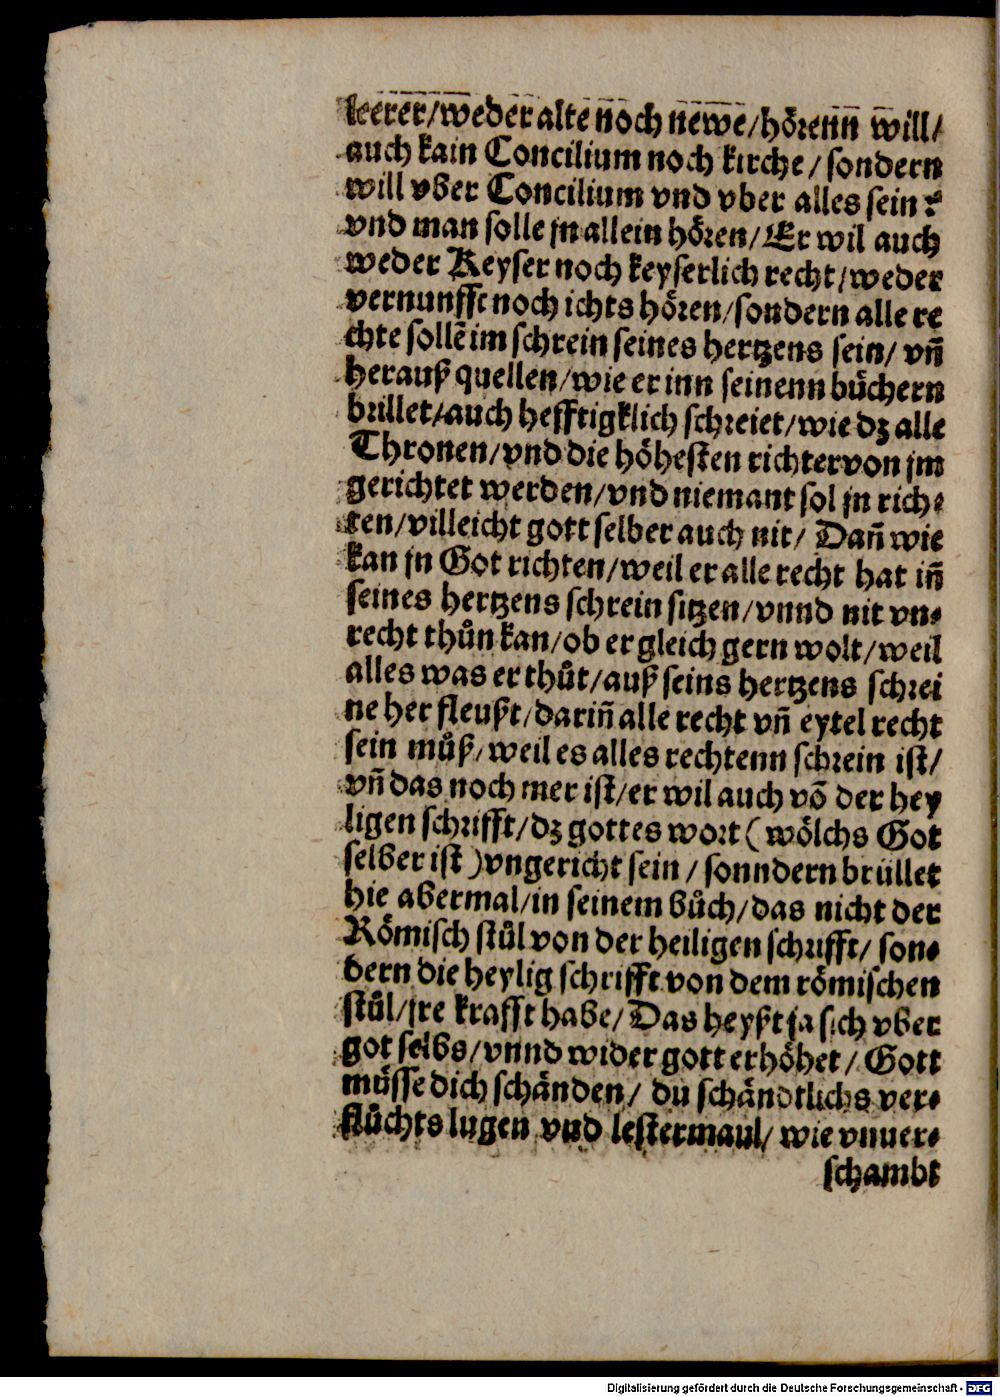 leerer/weder alte noch newe/hörenn will/
auch kain Concilium noch kirche/sondern
will vber Concilium vnd vber alles sein?
vnd man solle jn allein hören/Er wil auch
weder Keyser noch keyserlich recht/weder
vernunfft noch ichts hören/sondern alle re
chte sollē im schrein seines hertzens sein/ vñ
herauß quellen/wie er inn seinenn büchern
brillet/auch hefftigklich schreiet/wie dz alle
Thronen/vnd die höhesten richter von jm
gerichtet werden/vnd niemant sol jn rich⸗
ten/villeicht gott selber auch nit/ Dañ wie
kan jn Got richten/weil er alle recht hat iñ
seines hertzens schrein sitzen/vnnd nit vn⸗
recht thůn kan/ob er gleich gern wolt/weil
alles was er thůt/auß seins hertzens schrei
ne her fleußt/dariñ alle recht vñ eytel recht
sein můß/weil es alles rechtenn schrein ist/
vñ das noch mer ist/er wil auch vō der hey
ligen schrifft/dz gottes wort (wölchs Got
selber ist )vngericht sein / sonndern brüllet
hie abermal/in seinem bůch/das nicht der
Römisch stůl von der heiligen schrifft/ son⸗
dern die heylig schrifft von dem römischen
stůl/jre krafft habe/Das heyßt ja sich vber
got selbs/vnnd wider gott erhöhet/ Gott
müsse dich schänden/ du schändtlichs ver⸗
flůchts lugen vnd lestermaul/ wie vnuer⸗
schambt
Digitalisierung gefördert durch die Deutsche Forschungsgemeinschaft - DFG